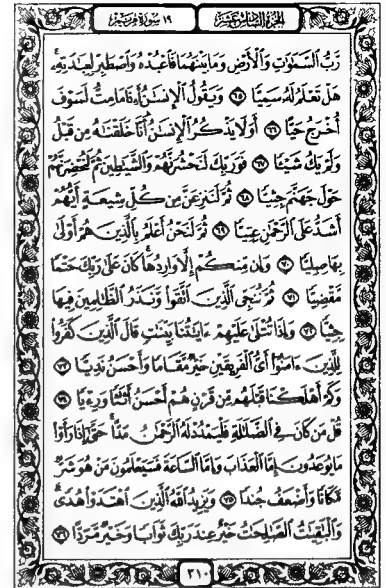 الجزء السادس عشر ١٩ سورة مريم
رَّبُّ ٱلسَّمَٰوَٰتِ وَٱلۡأَرۡضِ وَمَا بَيۡنَهُمَا فَٱعۡبُدۡهُ وَٱصۡطَبِرۡ لِعِبَٰدَتِهِۦۚ
هَلۡ تَعۡلَمُ لَهُۥ سَمِيّٗا ٦٥ وَيَقُولُ ٱلۡإِنسَٰنُ أَءِذَا مَامِتُّ لَسَوۡفَ
أُخۡرَجُ حَيًّا ٦٦ أَوَلَا يَذۡكُرُ ٱلۡإِنسَٰنُ أَنَّا خَلَقۡنَٰهُ مِن قَبۡلُ
وَلَمۡ يَكُ شَيۡـٔٗا ٦٧ فَوَرَبِّكَ لَنَحۡشُرَنَّهُمۡ وَٱلشَّيَٰطِينَ ثُمَّ لَنُحۡضِرَنَّهُمۡ
حَوۡلَ جَهَنَّمَ جِثِيّٗا ٦٨ ثُمَّ لَنَنزِعَنَّ مِن كُلِّ شِيعَةٍ أَيُّهُمۡ
أَشَدُّ عَلَى ٱلرَّحۡمَٰنِ عِتِيّٗا ٦٩ ثُمَّ لَنَحۡنُ أَعۡلَمُ بِٱلَّذِينَ هُمۡ أَوۡلَىٰ
بِهَا صِلِيّٗا ٧٠ وَإِن مِّنكُمۡ إِلَّا وَارِدُهَاۚ كَانَ عَلَىٰ رَبِّكَ حَتۡمٗا
مَّقۡضِيّٗا ٧١ ثُمَّ نُنَجِّي ٱلَّذِينَ ٱتَّقَواْ وَّنَذَرُ ٱلظَّٰلِمِينَ فِيهَا
جِثِيّٗا ٧٢ وَإِذَا تُتۡلَىٰ عَلَيۡهِمۡ ءَايَٰتُنَا بَيِّنَٰتٖ قَالَ ٱلَّذِينَ كَفَرُواْ
لِلَّذِينَ ءَامَنُوٓاْ أَيُّ ٱلۡفَرِيقَيۡنِ خَيۡرٞ مَّقَامٗا وَأَحۡسَنُ نَدِيّٗا ٧٣
وَكَمۡ أَهۡلَكۡنَا قَبۡلَهُم مِّن قَرۡنٍ هُمۡ أَحۡسَنُ أَثَٰثٗا وَرِءۡيٗا ٧٤
قُلۡ مَن كَانَ فِي ٱلضَّلَٰلَةِ فَلۡيَمۡدُدۡ لَهُ ٱلرَّحۡمَٰنُ مَدًّاۚ حَتَّىٰٓ إِذَا رَأَوۡاْ
مَا يُوعَدُونَ إِمَّا ٱلۡعَذَابَ وَإِمَّا ٱلسَّاعَةَ فَسَيَعۡلَمُونَ مَنۡ هُوَ شَرّٞ
مَّكَانٗا وَأَضۡعَفُ جُندٗا ٧٥ وَيَزِيدُ ٱللَّهُ ٱلَّذِينَ ٱهۡتَدَوۡاْ هُدٗىۗ
وَٱلۡبَٰقِيَٰتُ ٱلصَّٰلِحَٰتُ خَيۡرٌ عِندَ رَبِّكَ ثَوَابٗا وَخَيۡرٞ مَّرَدًّا ٧٦
٣١٠